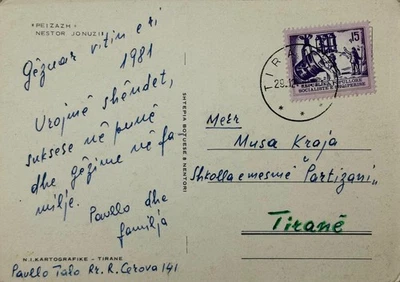 "PEIZAZH"
NESTOR JONUZI
Gëzuar vitin e ri
1981
Urojmë shëndet,
suksese në punë
dhe gëzime në fa
milje.
Pavllo dhe
familja
N.I.KARTOGRAFIKE - TIRANE
Pavllo Talo Rr. R. Cerova 141
SHTEPIA BOTUESE 8 NENTORI
TIRA
28.12
15
REPUBLIKA POPULLORE
SOCIALISTE E SHQIPERISE
Metr
Musa Kraja
Shkolla e mesmë "Partizani"
Tiranë